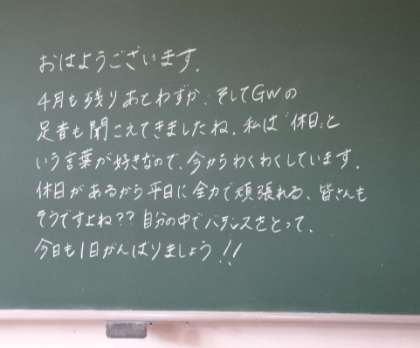 おはようございます.
4月も残りあとわずか.そしてGWの
足音も聞こえてきましたね.私は「休日」と
いう言葉が好きなので、今からわくわくしています.
休日があるから平日に全力で頑張れる、皆さんも
そうですよね??自分の中でバランスをとって、
今日も1日がんばりましょう!!